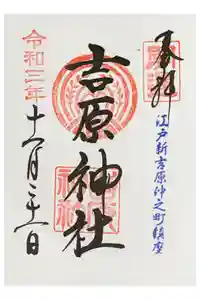 奉拝
江戸新吉原仲之町鎮座
吉原神社
令和三年
十一月二十一日